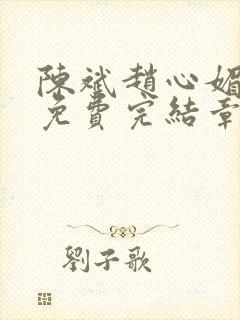 陳斌趙心媚
免費完結章
劉子歌